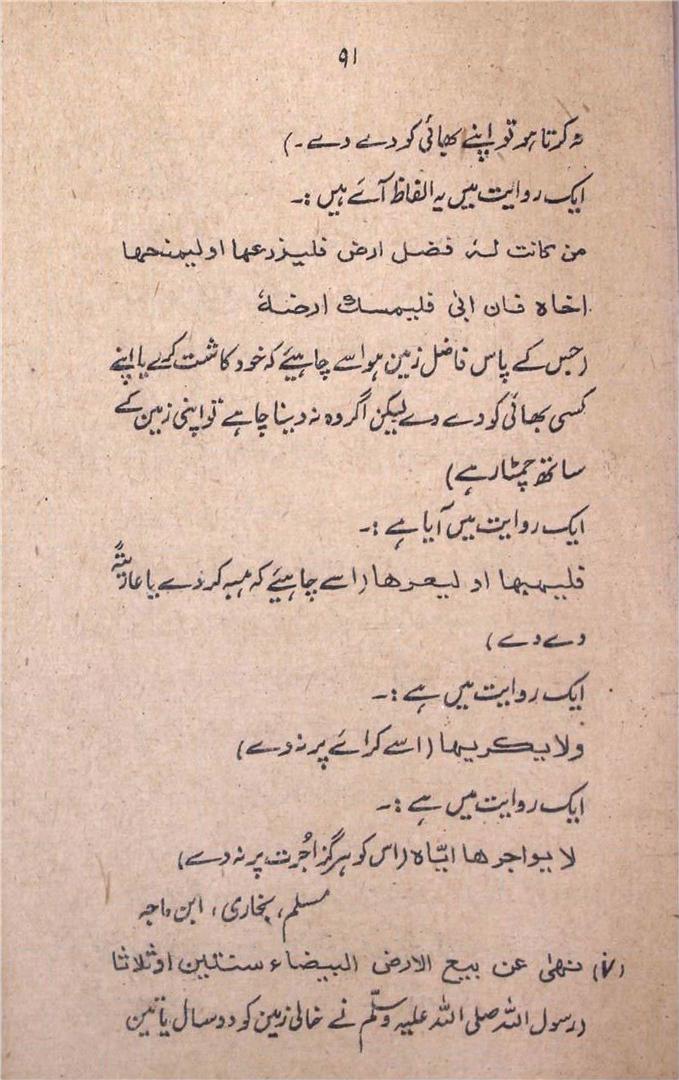 ۹۱
نہ کرتا ہو تو اپنے بھائی کو دے دے ۔)
ایک روایت میں یہ الفاظ آئے ہیں :۔
من کانت لہٗ فضل ارض فلیزرعہا اولیمنحہا
اخاہ فان ابیٰ فلیمسک ارضہٗ
(جس کے پاس فاضل زمین ہو اسے چاہیئے کہ خود کاشت کرے یا اپنے
کسی بھائی کو دے دے لیکن اگر وہ نہ دینا چاہے تو اپنی زمین کے
ساتھ چمٹا رہے)
ایک روایت میں آیا ہے :۔
فلیہبہا او لیعرھا (اسے چاہیئے کہ ہبہ کر دے یا عاریتہً
دے دے)
ایک روایت میں ہے :۔
ولا یکریہا (اسے کرائے پر نہ دے)
ایک روایت میں ہے :۔
لا یواجرھا ایّاہ (اس کو ہرگز اُجرت پر نہ دے)
مسلم، بخاری، ابن ماجہ
(۷) نہیٰ عن بیع الارض البیضاء سنتین اوثلاثا
(رسول اللہ صلی اللہ علیہ وسلّم نے خالی زمین کو دو سال یا تین